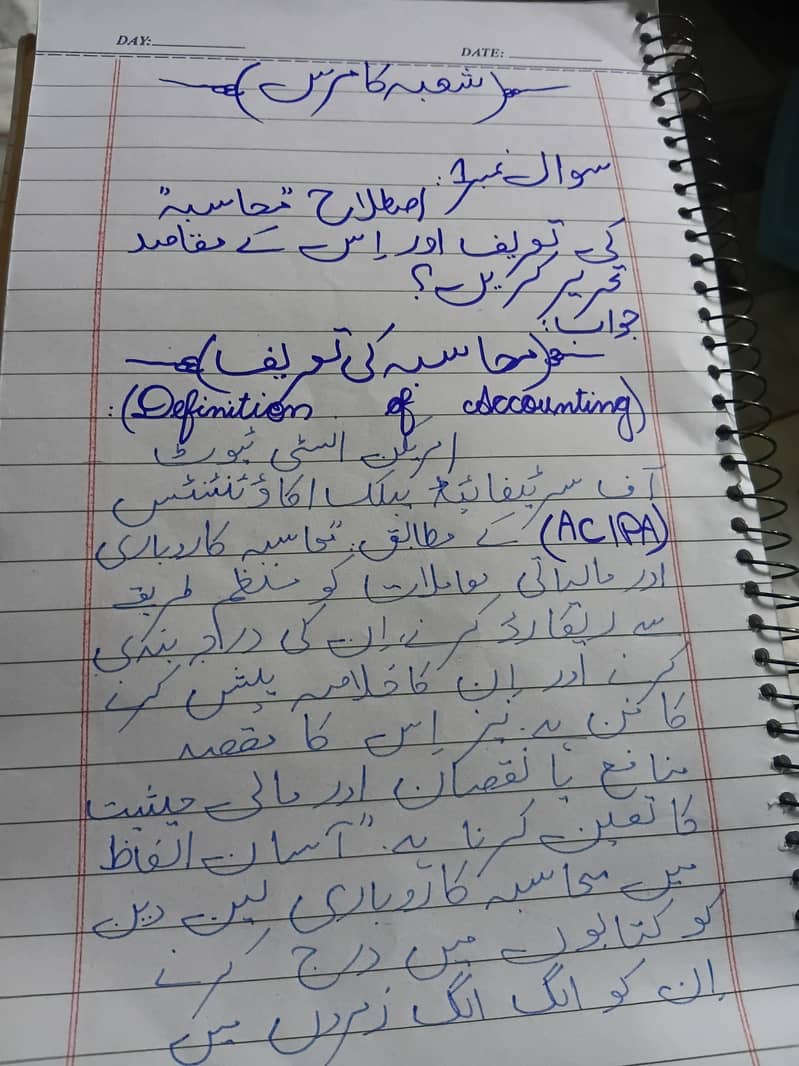 DAY: DATE:
(شعبہ کامرس)
سوال نمبر 1:
اصطلاح "محاسبہ"
کی تعریف اور اِس کے مقاصد
تحریر کریں؟
جواب:
(محاسبہ کی تعریف)
(Definition of Accounting):
امریکن انسٹی ٹیوٹ
آف سرٹیفائیڈ پبلک اکاؤنٹنٹس
(ACIPA) کے مطابق: "محاسبہ کاروباری
اور مالیاتی معاملات کو منظم طریقے
سے ریکارڈ کرنے، ان کی درجہ بندی
کرنے اور اِن کا خلاصہ پیش کرنے
کا فن ہے۔ نیز اِس کا مقصد
منافع یا نقصان اور مالی حیثیت
کا تعین کرنا ہے۔" آسان الفاظ
میں محاسبہ کاروباری لین دین
کو کتابوں میں درج کرنے
اِن کو الگ الگ زمروں میں